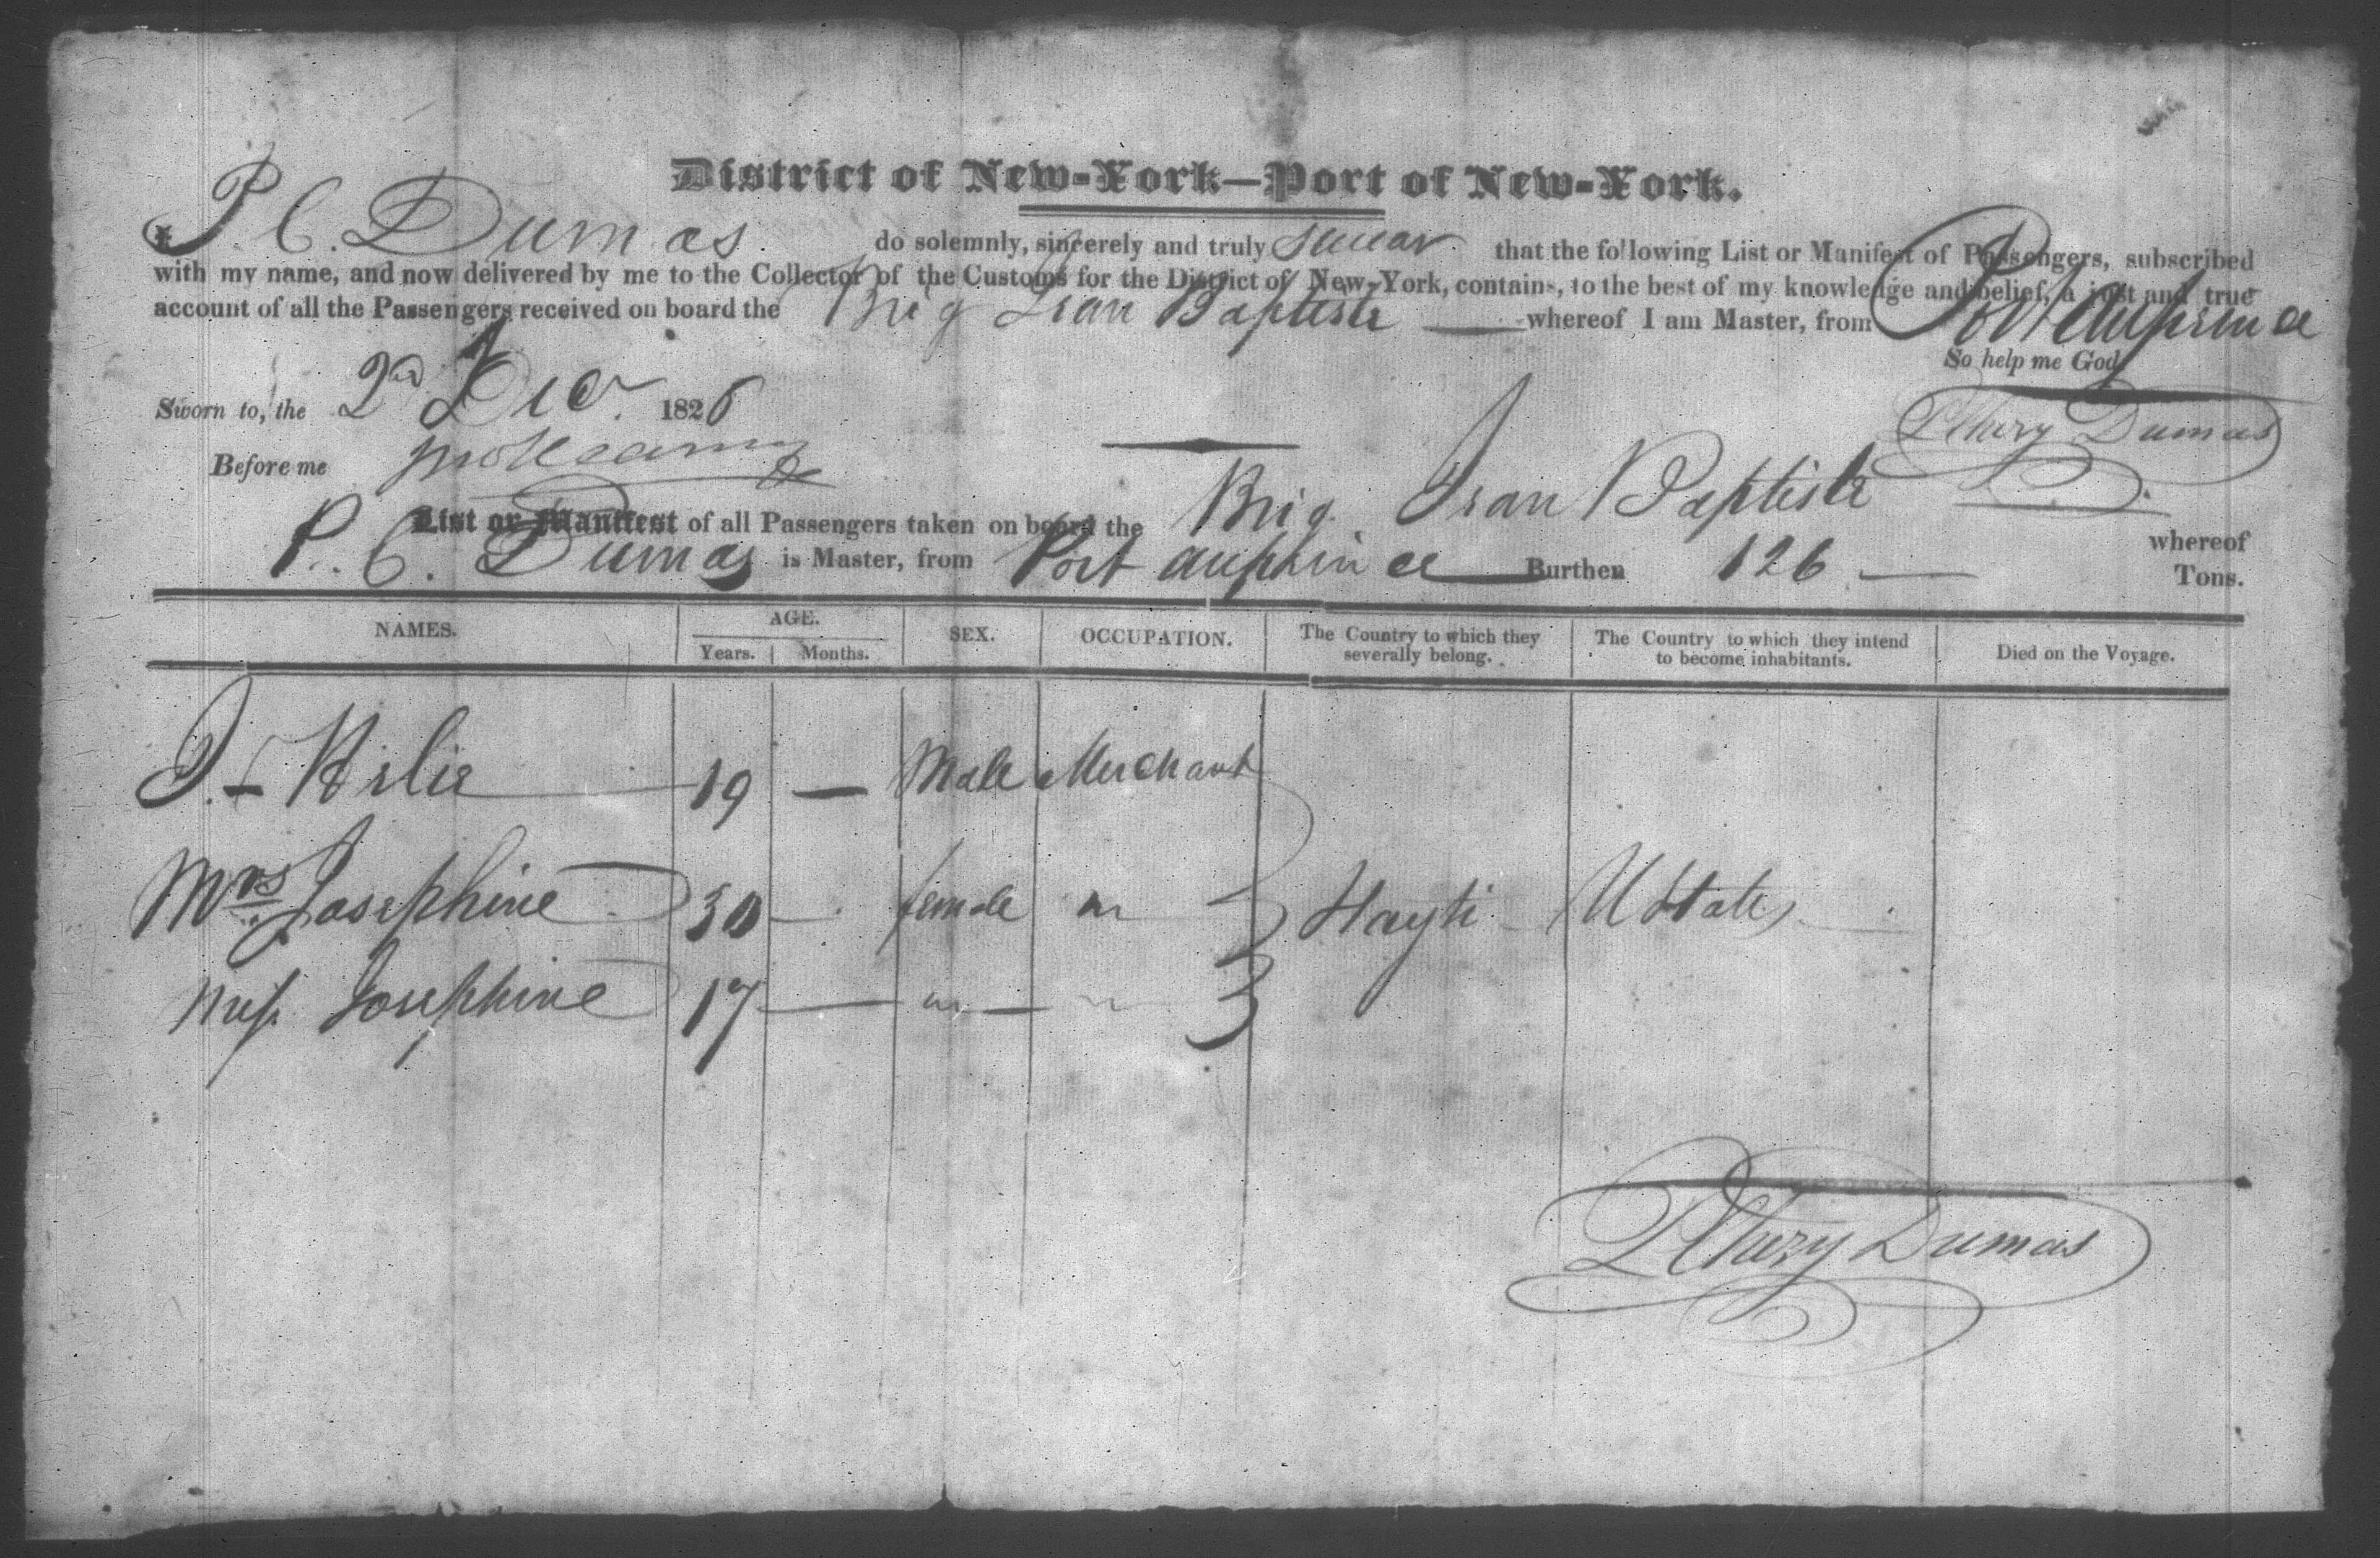 District of New-York—Port of New-York.
I, P. C. Dumas do solemnly, sincerely and truly swear that the following List or Manifest of Passengers, subscribed
with my name, and now delivered by me to the Collector of the Customs for the District of New-York, contains, to the best of my knowledge and belief, a just and true
account of all the Passengers received on board the Brig Jean Baptiste whereof I am Master, from Port auprince
So help me God.
Sworn to, the 2nd Dec 1826
P Chery Dumas
Before me
List or Manifest of all Passengers taken on board the Brig Jean Baptiste whereof
P. C. Dumas is Master, from Port auprince Burthen 126 — Tons.
NAMES. AGE. Years. Months. SEX. OCCUPATION. The Country to which they severally belong. The Country to which they intend to become inhabitants. Died on the Voyage.
19 — Male Merchant
Mrs Josephine 30 — female " Hayti U States
Miss Josephine 17 — " — "
P Chery Dumas